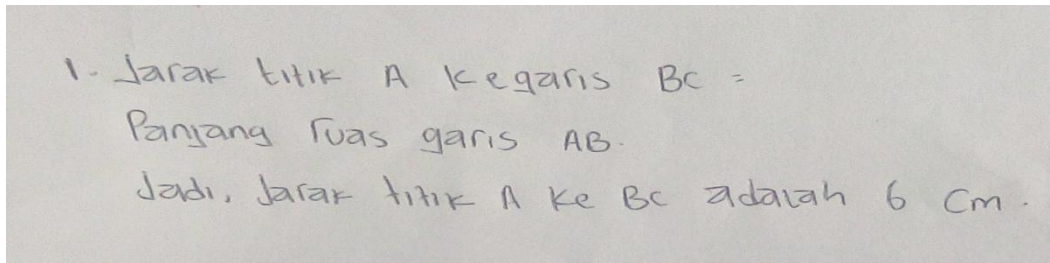 1. Jarak titik A kegaris BC =
Panjang ruas garis AB.
Jadi, Jarak titik A ke BC adalah 6 cm.